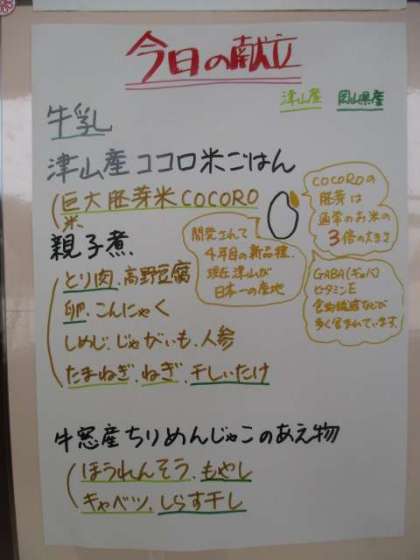 今日の献立
津山産 岡山県産
牛乳
津山産ココロ米ごはん
(巨大胚芽米COCORO
米
COCOROの
胚芽は
通常のお米の
3倍の大きさ
開発されて
4年目の新品種.
現在津山が
日本一の産地
GABA(ギャバ)
ビタミンE
食物繊維などが
多く含まれています.
親子煮
とり肉.高野豆腐
卵.こんにゃく
しめじ.じゃがいも.人参
たまねぎ.ねぎ.干しいたけ
牛窓産ちりめんじゃこのあえ物
ほうれんそう.もやし
キャベツ.しらす干し